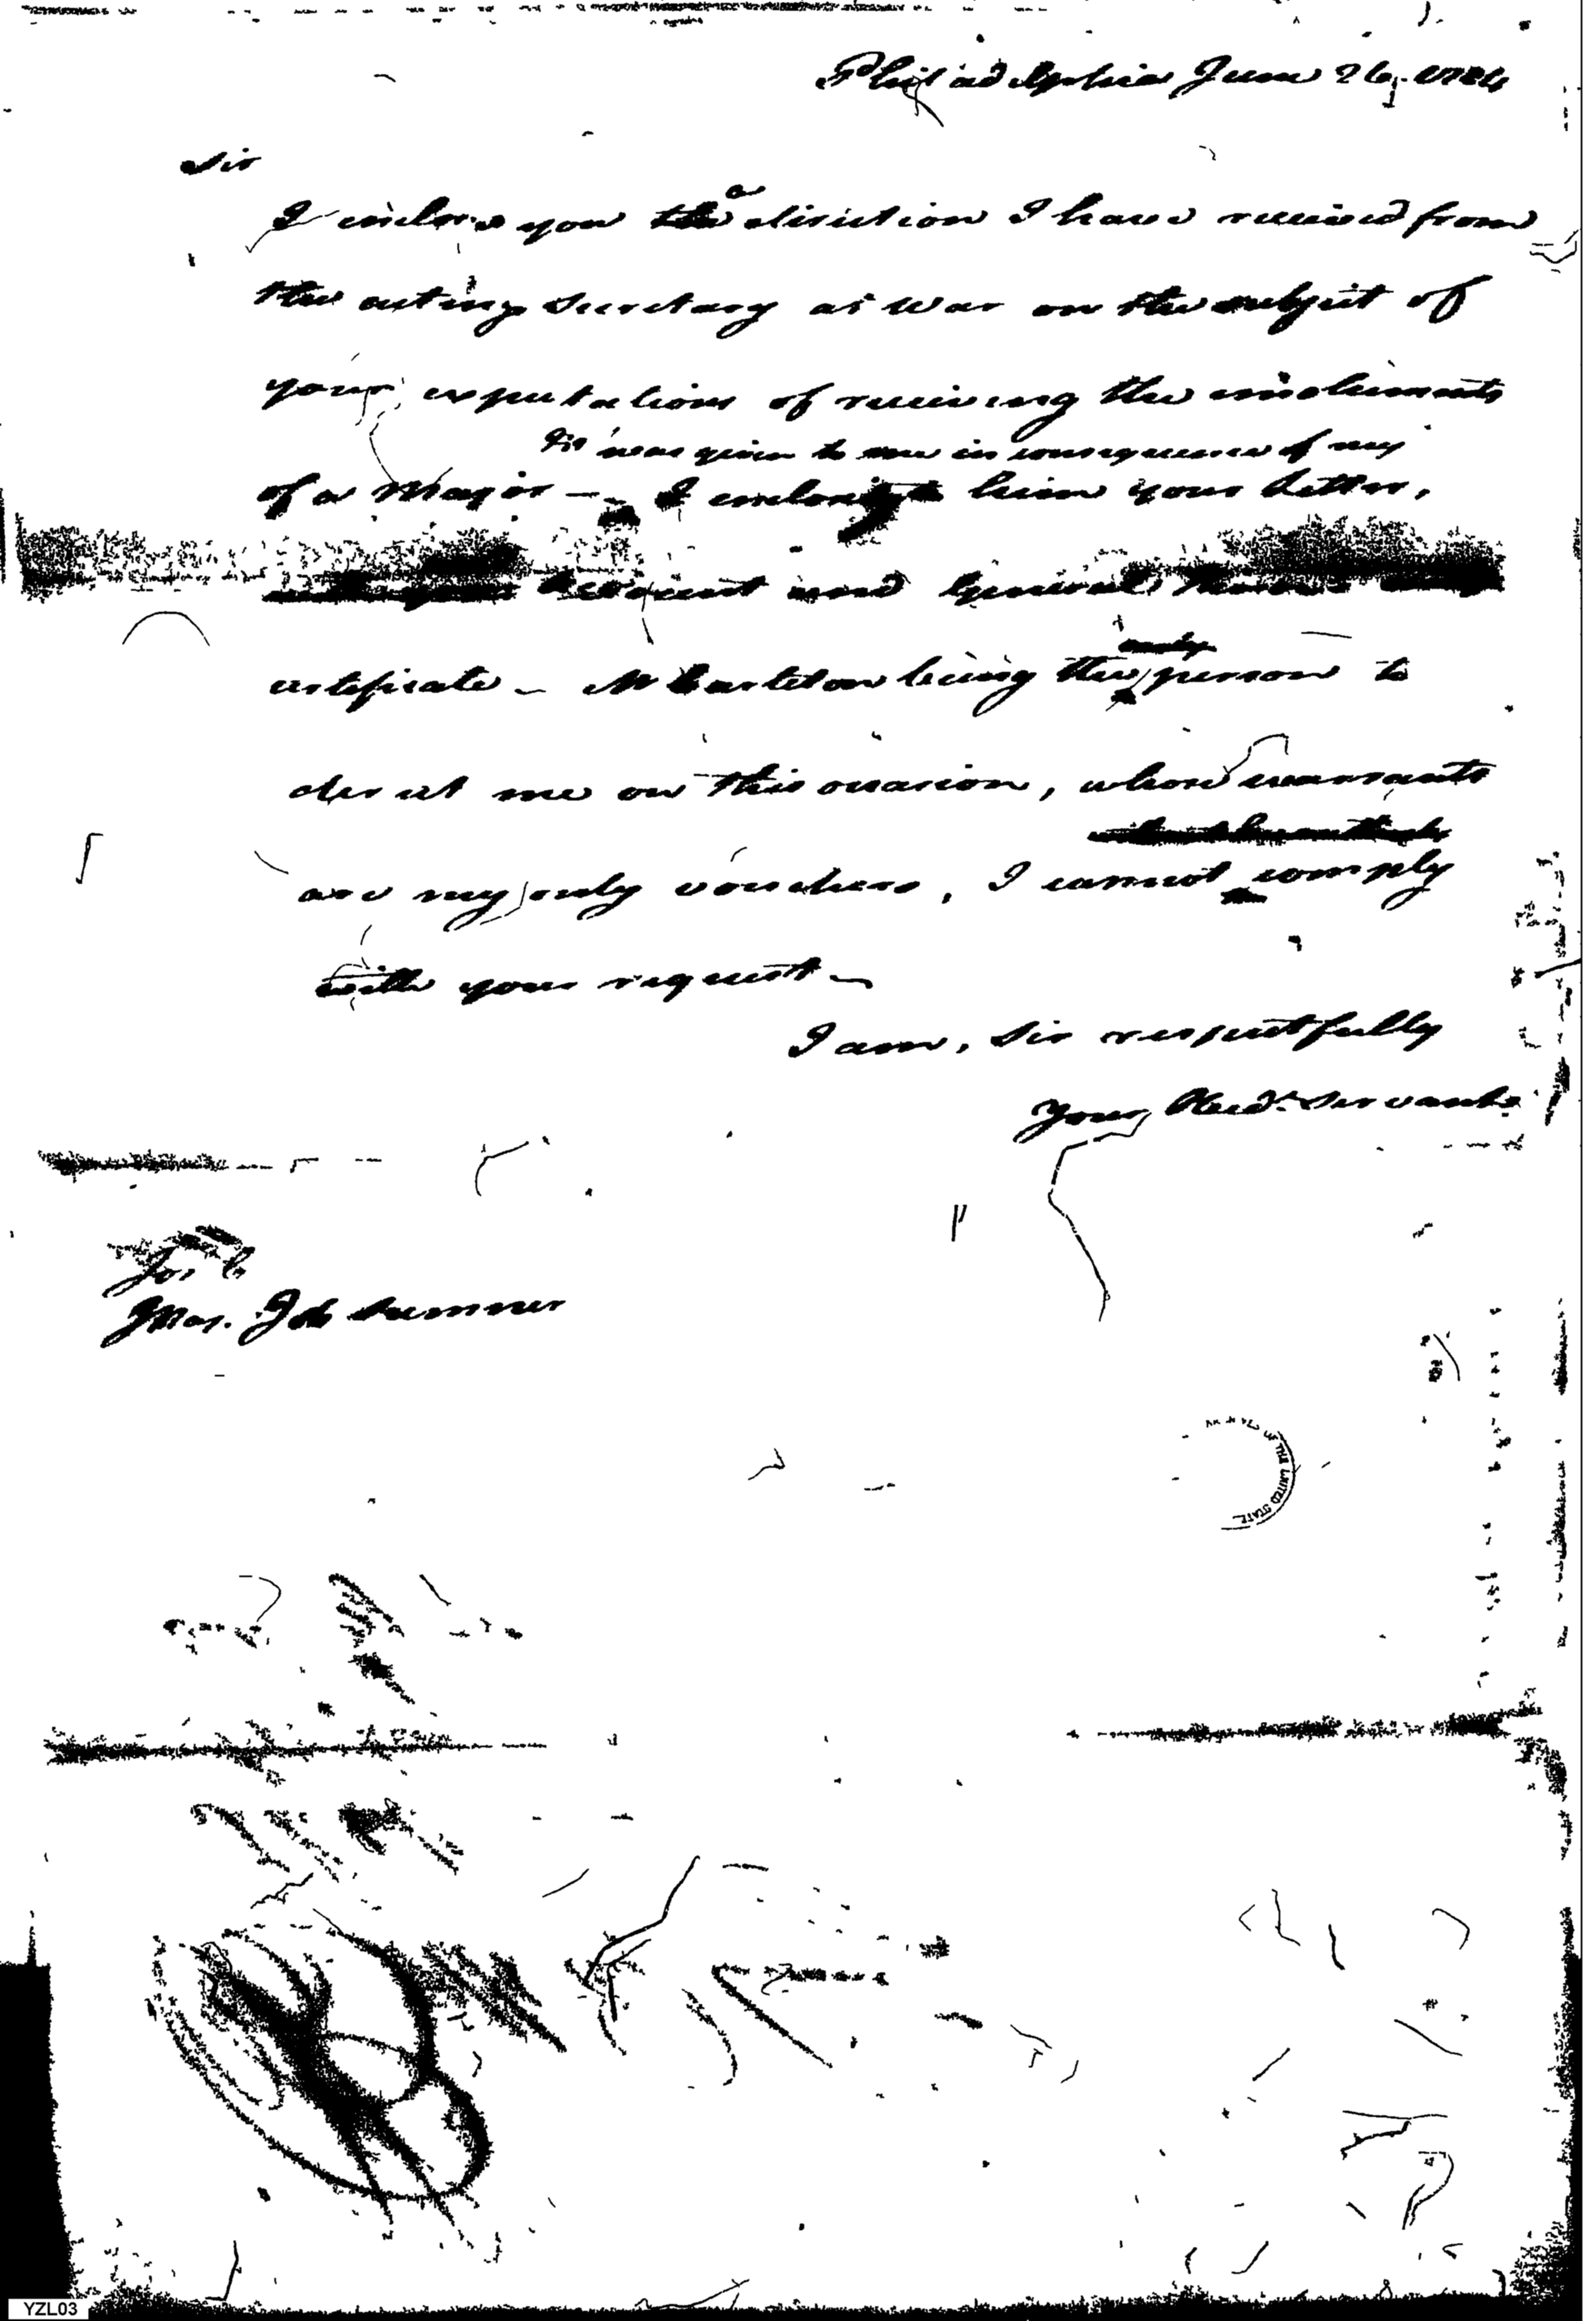 Philadelphia June 26, 1784
Sir
I inclose you a direction I have received from
the acting Secretary at War on the subject of
your expectations of receiving the emoluments
It was given to me in consequence of my
of a Major — inclosing him your letter,
account and General
certificate — Mr Carleton being the only person to
direct me on this occasion, whose warrants
are my only vouchers, I cannot comply
with your request —
I am, Sir respectfully
Your Obedt. Servant
Maj. Job Sumner
THE UNITED STATE
YZL03